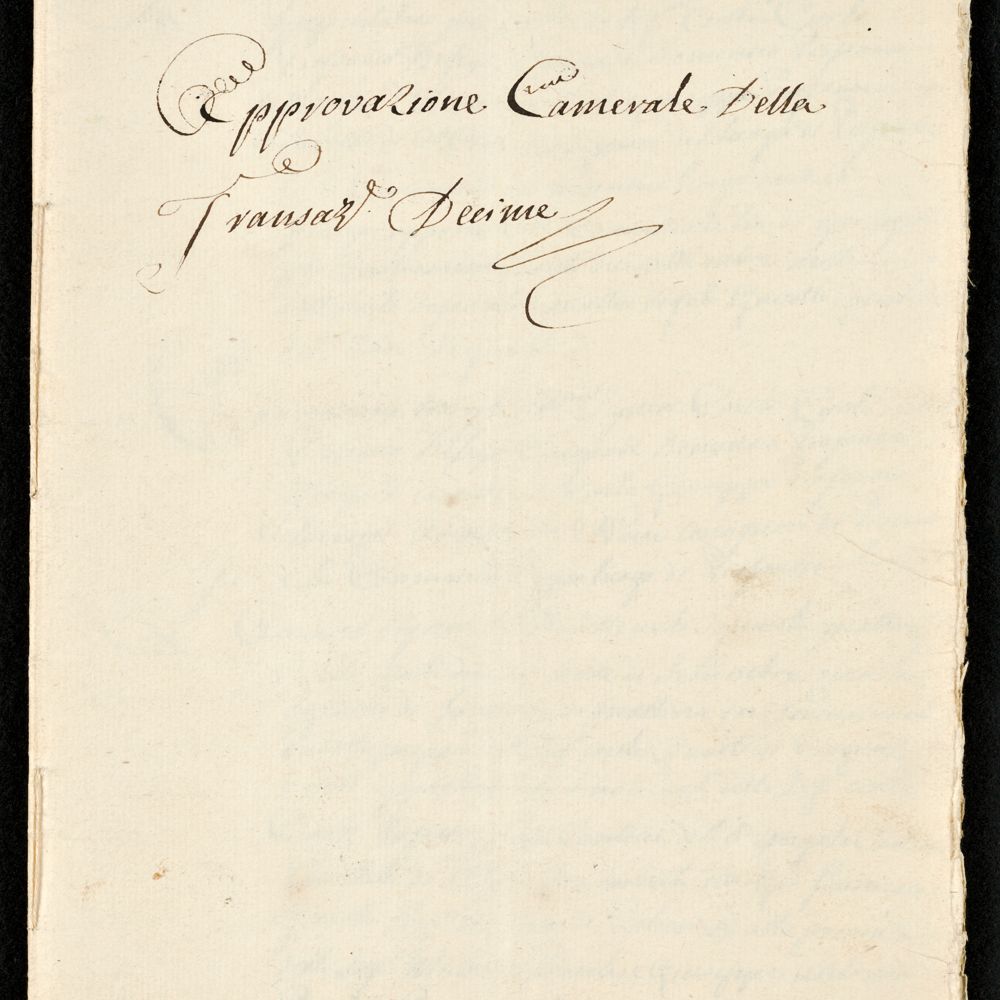 Approvazione Camerale Della
Transaz.e Decime